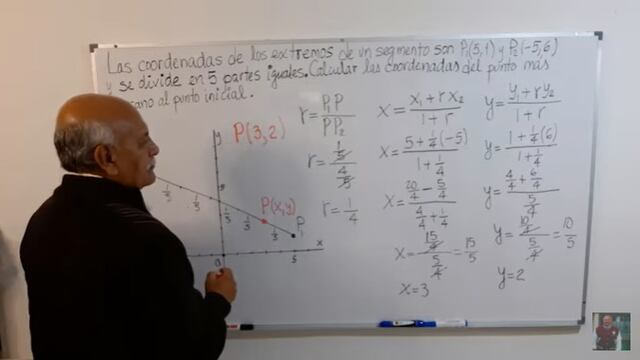 Las coordenadas de los extremos de un segmento son P₁(5,1) y P₂(-5,6)
y se divide en 5 partes iguales. Calcular las coordenadas del punto más
cano al punto inicial.
P(3,2)
r = P₁P / PP₂
r = (1/5) / (4/5)
r = 1/4
x = (x₁ + r x₂) / (1 + r)
x = (5 + 1/4(-5)) / (1 + 1/4)
x = (20/4 - 5/4) / (4/4 + 1/4)
x = (15/4) / (5/4) = 15/5
x = 3
y = (y₁ + r y₂) / (1 + r)
y = (1 + 1/4(6)) / (1 + 1/4)
y = (4/4 + 6/4) / (5/4)
y = (10/4) / (5/4) = 10/5
y = 2
y
1/5
1/5
1/5
1/5
1/5
P(x,y)
P₁
x
0
5